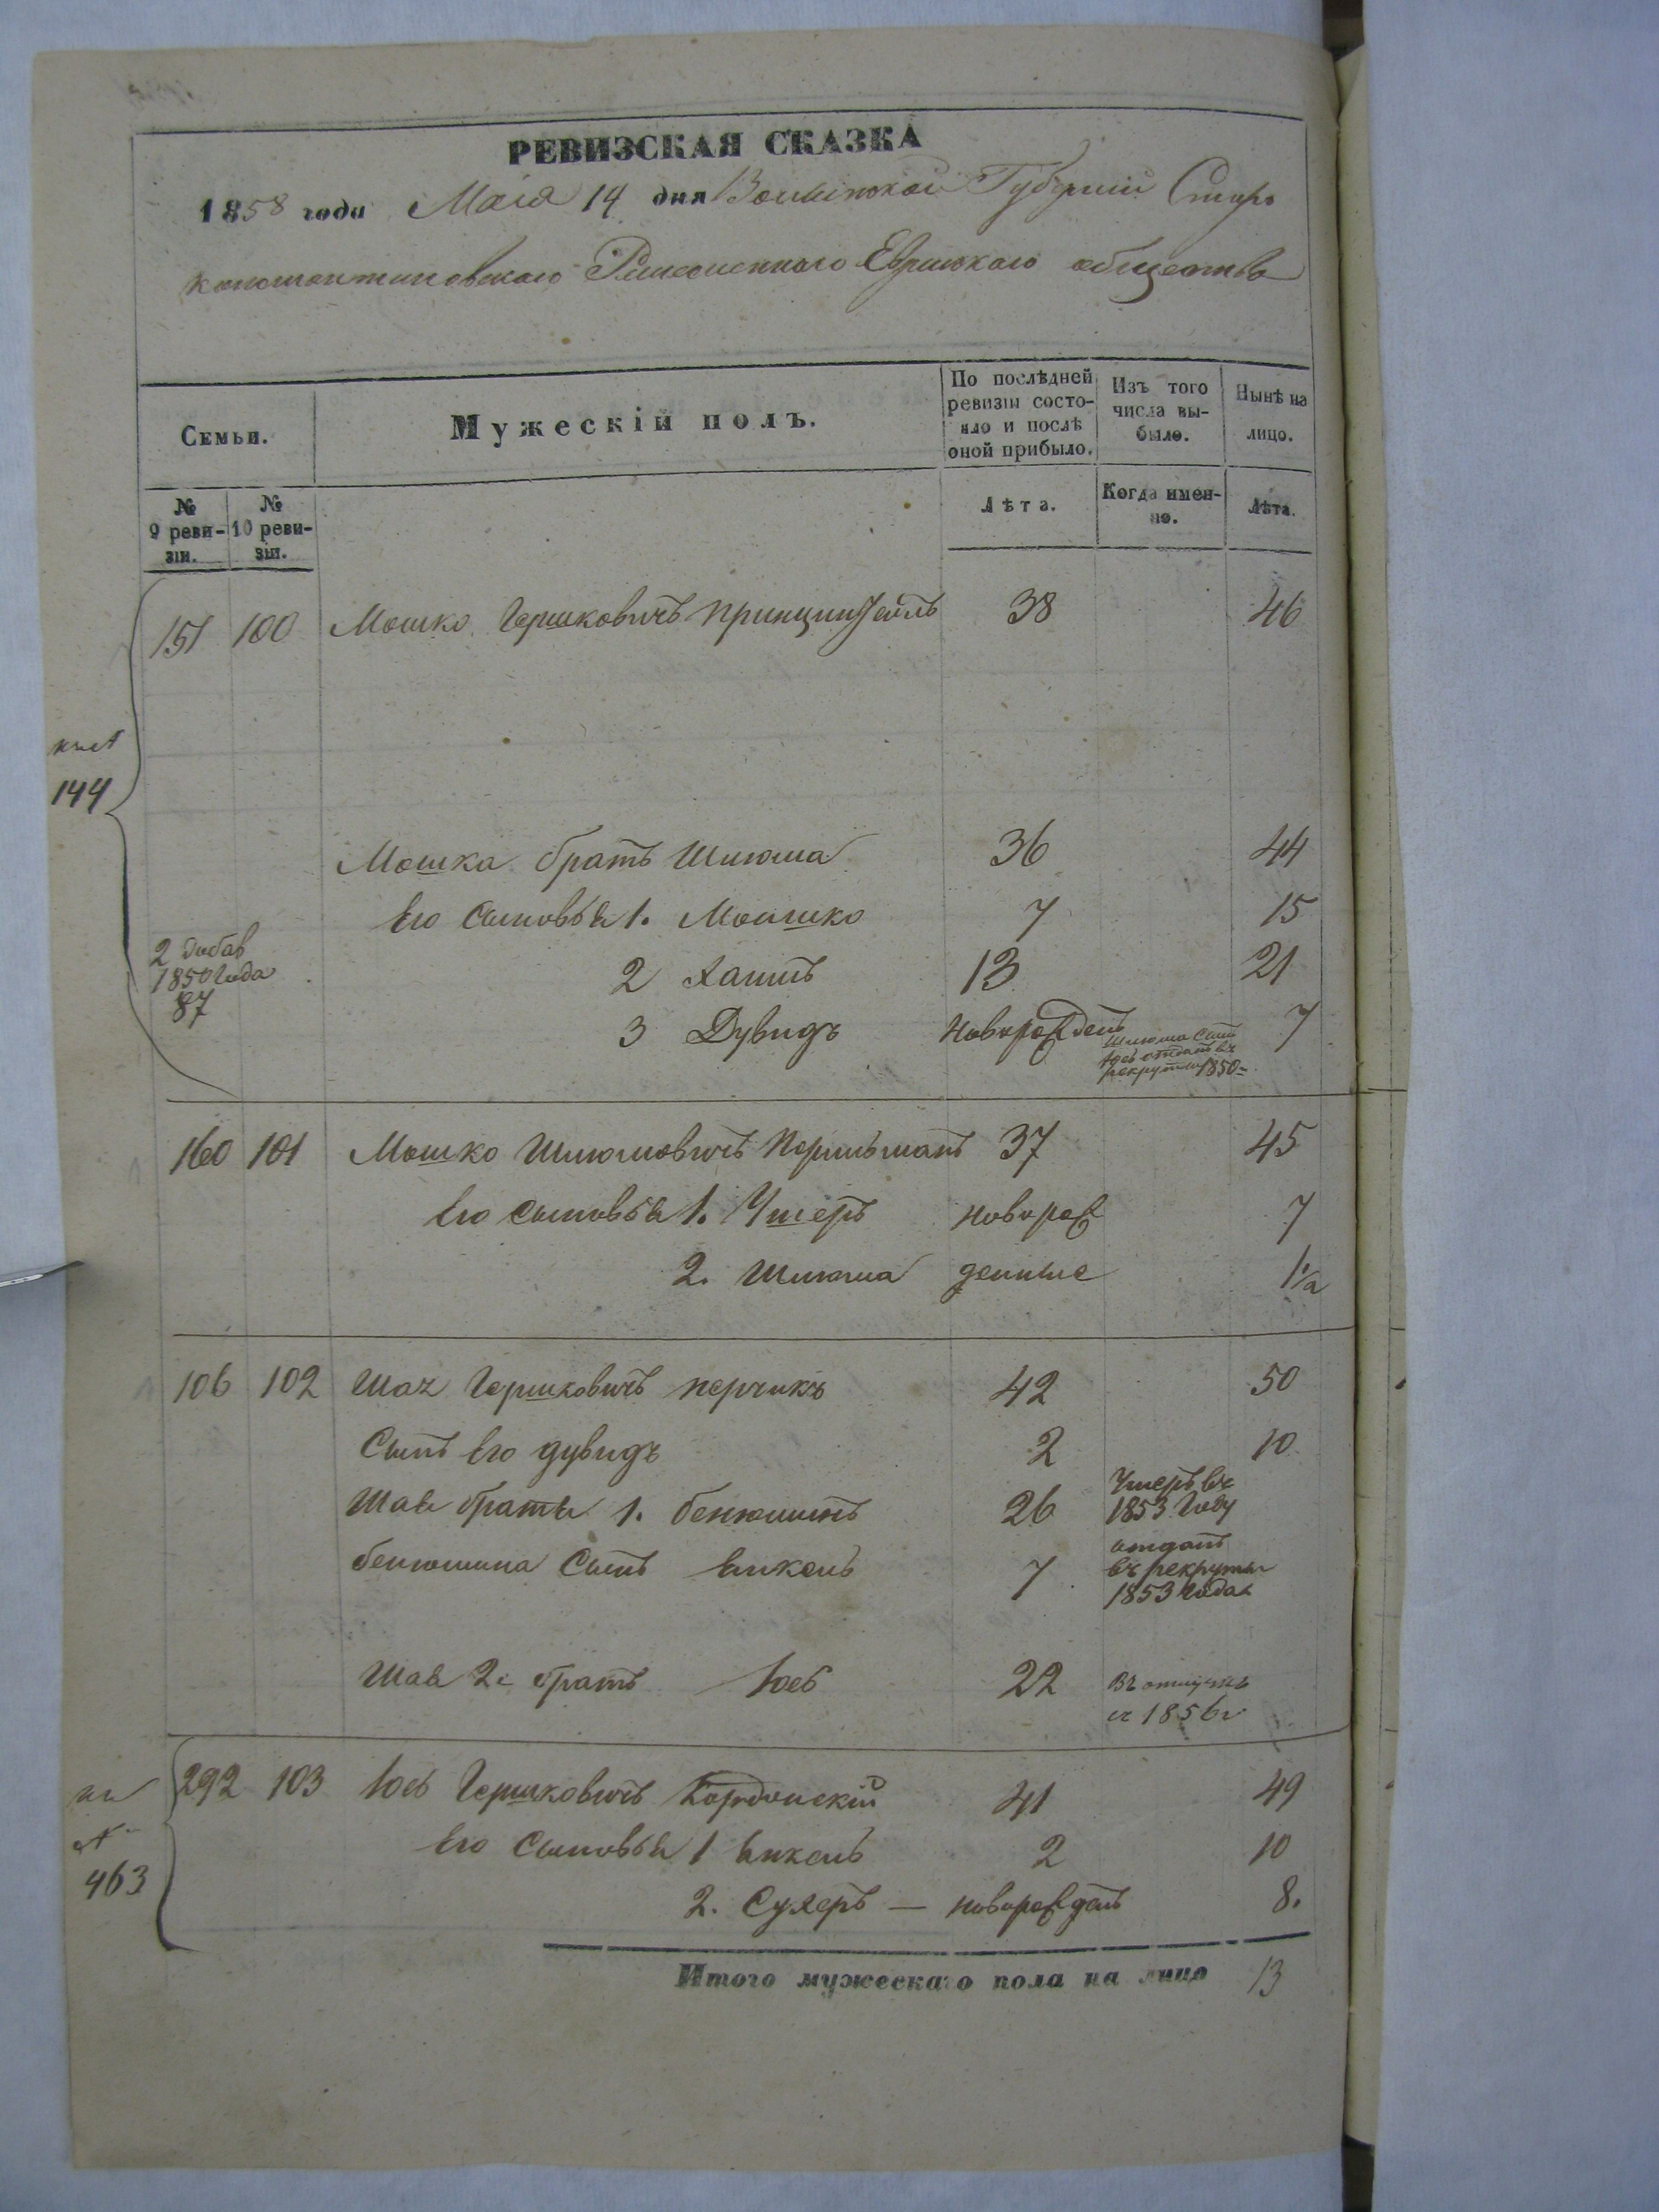 РЕВИЗСКАЯ СКАЗКА
1858 года Маія 14 дня Волынской Губерніи Старо
константиновскаго Ремесленнаго Еврейскаго общества
Семьи.
Мужескій полъ.
По послѣдней ревизіи состояло и послѣ оной прибыло.
Изъ того числа выбыло.
Нынѣ на лицо.
№ 9 ревизіи.
№ 10 ревизіи.
Лѣта.
Когда именно.
Лѣта.
151 100 Мошко Гершковичъ 38 46
144
Мошка братъ Шлюма 36 44
Его Сыновья 1. Мошко 7 15
2 добав
1850 Года
87
2 Хаимъ 13 21
3 Дувидъ Новорожденъ 7
Шлюма Сынъ
Іось отданъ въ
рекруты 1850
160 101 Мошко Шлюмовичъ Перльманъ 37 45
Его сыновья 1. Ушеръ новорож 7
2. Шлюма денные 1 1/2
106 102 Шая Гершковичъ перчикъ 42 50
Сынъ Его дувидъ 2 10
Шаи братья 1. бенюминъ 26 Умеръ въ
1853 Году
бенюмина Сынъ Янкель 7 отданъ
въ рекруты
1853 Года
Шаи 2й братъ Іось 22
с 1856 г
292 103 Іось Гершковичъ Кордонскій 41 49
463
Его Сыновья 1 Янкель 2 10
2. Сухеръ — новорожденъ 8.
Итого мужескаго пола на лицо 13